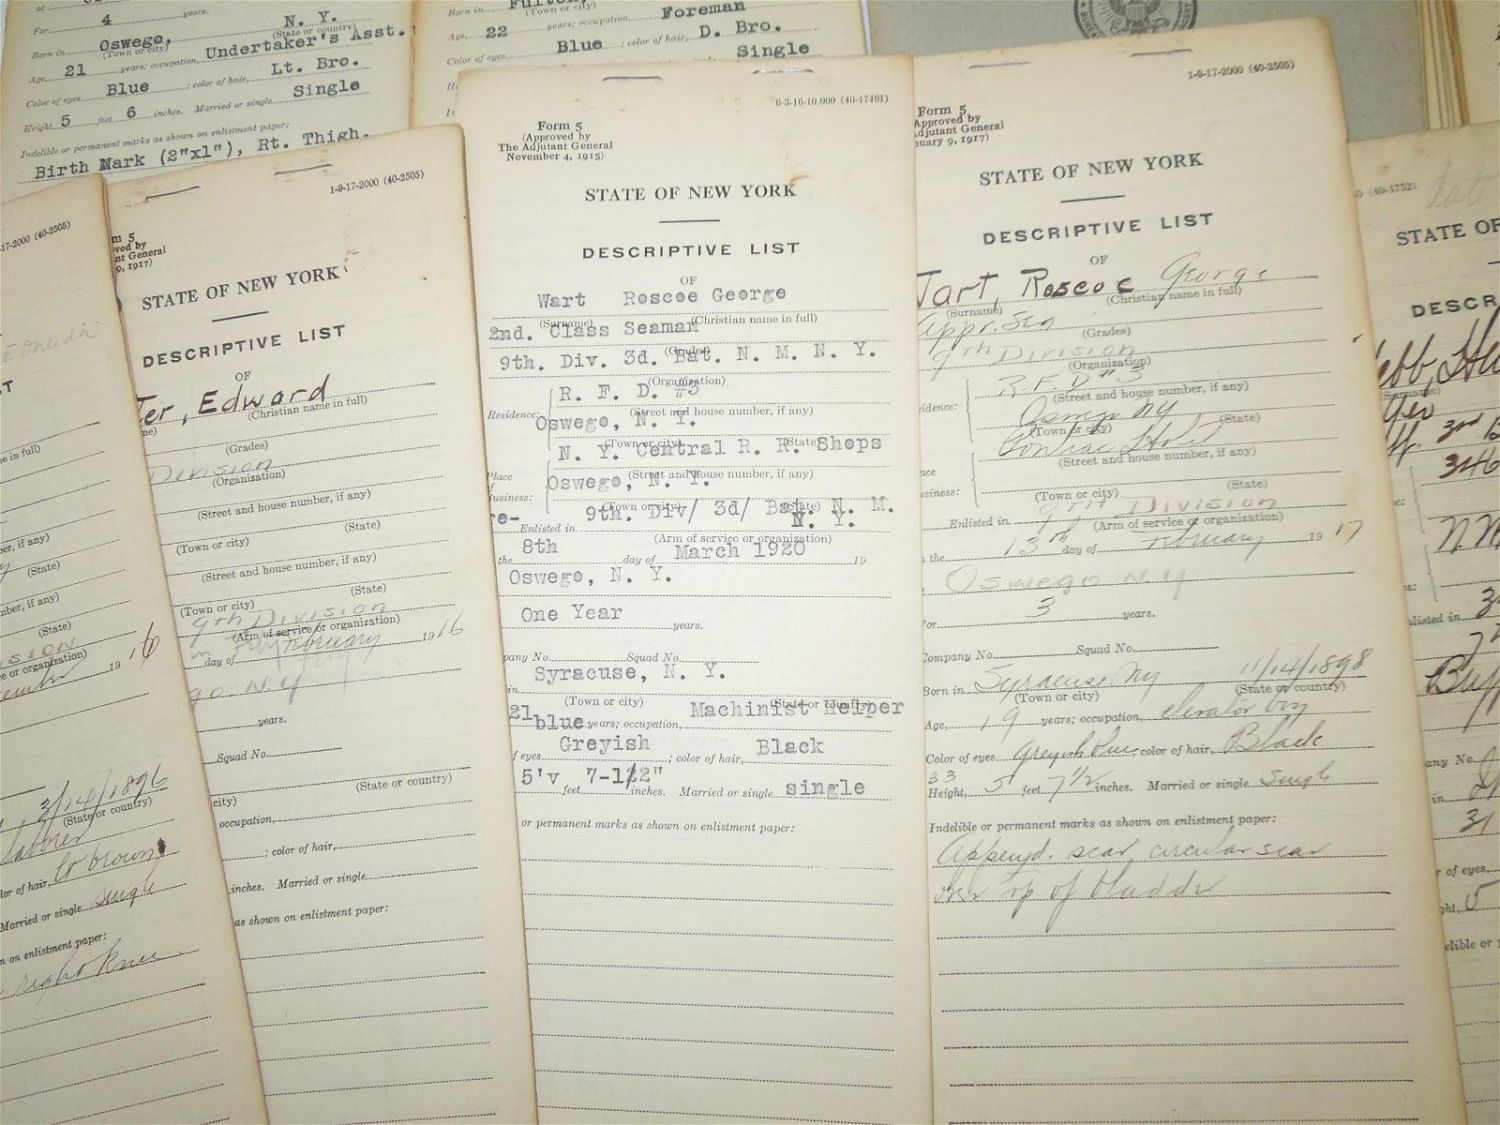 4 years.
N. Y.
Born in Oswego,
(Town or city) (State or country)
Age, 21 years; occupation, Undertaker's Asst.
Color of eyes Blue ; color of hair, Lt. Bro.
Height, 5 feet 6 inches. Married or single Single
Indelible or permanent marks as shown on enlistment paper:
Birth Mark (2"x1"), Rt. Thigh.
Born in
(Town or city)
Age, 22 years; occupation, Foreman
Color of eyes Blue ; color of hair, D. Bro.
Single
17-2000 (40-2505)
E Oneida
(State)
(State)
or organization)
19 16
3/14/1896
(State or country)
laborer
color of hair, lt brown
Married or single single
on enlistment paper:
right knee
1-9-17-2000 (40-2505)
STATE OF NEW YORK
DESCRIPTIVE LIST
OF
Edward
(Christian name in full)
(Grades)
Division
(Organization)
(Street and house number, if any)
(State)
(Town or city)
(Street and house number, if any)
(State)
(Town or city)
9th Division
(Arm of service or organization)
day of February 1916
N. Y
years.
Squad No.
(State or country)
city)
occupation,
; color of hair,
inches. Married or single
as shown on enlistment paper:
6-3-16-10,000 (40-17491)
Form 5
(Approved by
The Adjutant General
November 4, 1915)
STATE OF NEW YORK
DESCRIPTIVE LIST
OF
Wart Roscoe George
(Surname) (Christian name in full)
2nd. Class Seaman
(Grades)
9th. Div. 3d. Bat. N. M. N. Y.
(Organization)
Residence: R. F. D. #3
(Street and house number, if any)
Oswego, N. Y.
(Town or city) (State)
N. Y. Central R. R. Shops
(Street and house number, if any)
Place
of
Business: Oswego, N. Y.
(Town or city) (State)
re- Enlisted in 9th. Div/ 3d/ Bat. N. M.
N. Y.
(Arm of service or organization)
the 8th day of March 1920 19
Oswego, N. Y.
One Year years.
Company No. Squad No.
in Syracuse, N. Y.
(Town or city) (State or country)
21 years; occupation, Machinist Helper
blue
of eyes Greyish ; color of hair, Black
5'v feet 7-1/2" inches. Married or single single
or permanent marks as shown on enlistment paper:
1-9-17-2000 (40-2505)
Form 5
Approved by
Adjutant General
January 9, 1917)
STATE OF NEW YORK
DESCRIPTIVE LIST
OF
Wart, Roscoe George
(Surname) (Christian name in full)
Appr. Sea
(Grades)
9th Division
(Organization)
R. F. D #3
(Street and house number, if any)
Oswego NY
(Town or city) (State)
Pontiac Hotel
(Street and house number, if any)
(Town or city) (State)
Enlisted in 9th Division
(Arm of service or organization)
the 13th day of February 1917
Oswego N Y
For 3 years.
Company No. Squad No.
Born in Syracuse NY 11/14/1898
(Town or city) (State or country)
Age, 19 years; occupation, elevator boy
Color of eyes Greyish blue ; color of hair, Black
33
Height, 5 feet 7 1/2 inches. Married or single Single
Indelible or permanent marks as shown on enlistment paper:
Append. scar, circular scar
over tip of bladder
(40-1752)
STATE OF